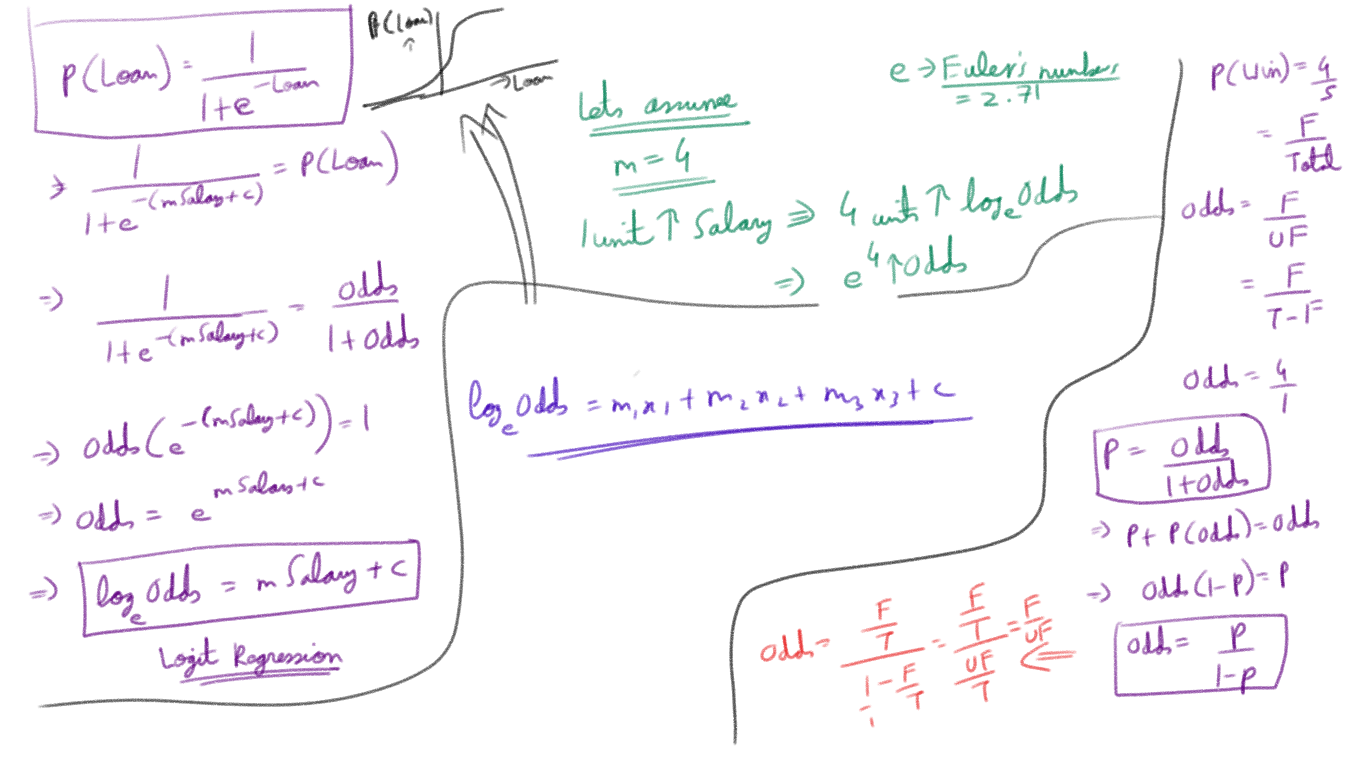 P(Loan) = 1/(1+e^(-Loan))
P(Loan) ↑
→ Loan
⇒ 1/(1+e^(-(mSalary+c))) = P(Loan)
⇒ 1/(1+e^(-(mSalary+c))) = Odds/(1+Odds)
⇒ Odds(e^(-(mSalary+c))) = 1
⇒ Odds = e^(mSalary+c)
⇒ logₑOdds = mSalary + c
Logit Regression
Lets assume
m = 4
1 unit ↑ Salary ⇒ 4 units ↑ logₑOdds
⇒ e⁴ ↑ Odds
e → Euler's number
= 2.71
logₑOdds = m₁x₁ + m₂x₂ + m₃x₃ + c
P(Win) = 4/5
= F/Total
Odds = F/UF
= F/(T-F)
Odds = 4/1
P = Odds/(1+Odds)
⇒ P + P(Odds) = Odds
⇒ Odds(1-P) = P
Odds = P/(1-P)
Odds = (F/T)/(1/1 - F/T) = (F/T)/(UF/T) = F/UF ⇐